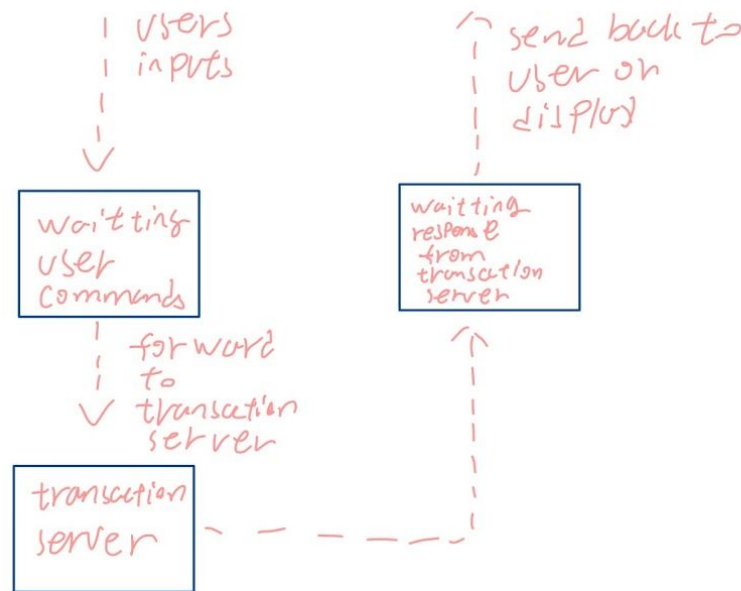 users
inputs
waitting
user
commands
forword
to
transcation
server
transcation
server
waitting
response
from
transcation
server
send back to
user or
display